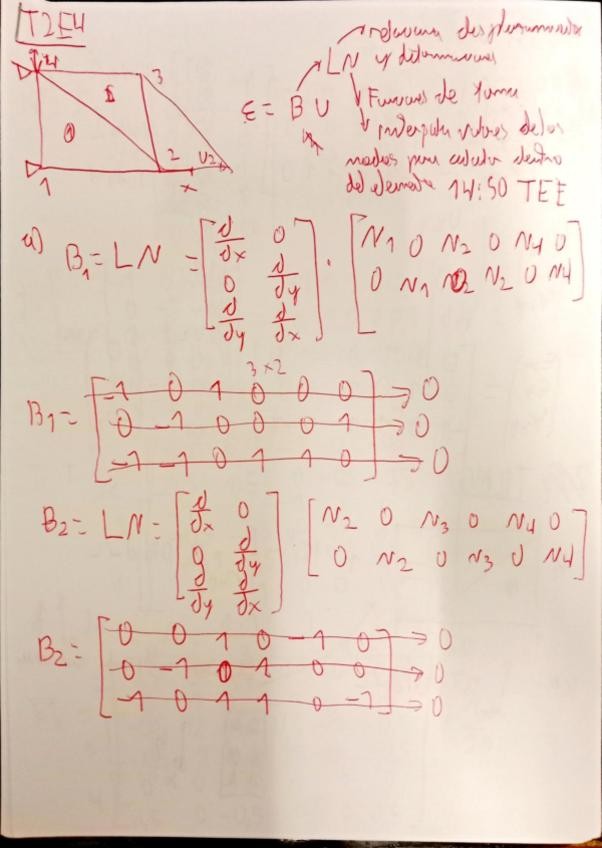 T2E4
relaciona desplazamientos
LN y deformaciones
ε = B U
Funciones de forma
interpola valores de los
nodos para calcular dentro
del elemento 14:50 TEE
4
3
1
2 U2
x
1
a) B1 = LN = [d/dx 0; 0 d/dy; d/dy d/dx] · [N1 0 N2 0 N4 0; 0 N1 0 N2 0 N4]
3x2
B1 = [-1 0 1 0 0 0; 0 -1 0 0 0 1; -1 -1 0 1 1 0]
→ 0
→ 0
→ 0
B2 = LN = [d/dx 0; 0 d/dy; d/dy d/dx] [N2 0 N3 0 N4 0; 0 N2 0 N3 0 N4]
B2 = [0 0 1 0 -1 0; 0 -1 0 1 0 0; -1 0 1 1 0 -1]
→ 0
→ 0
→ 0